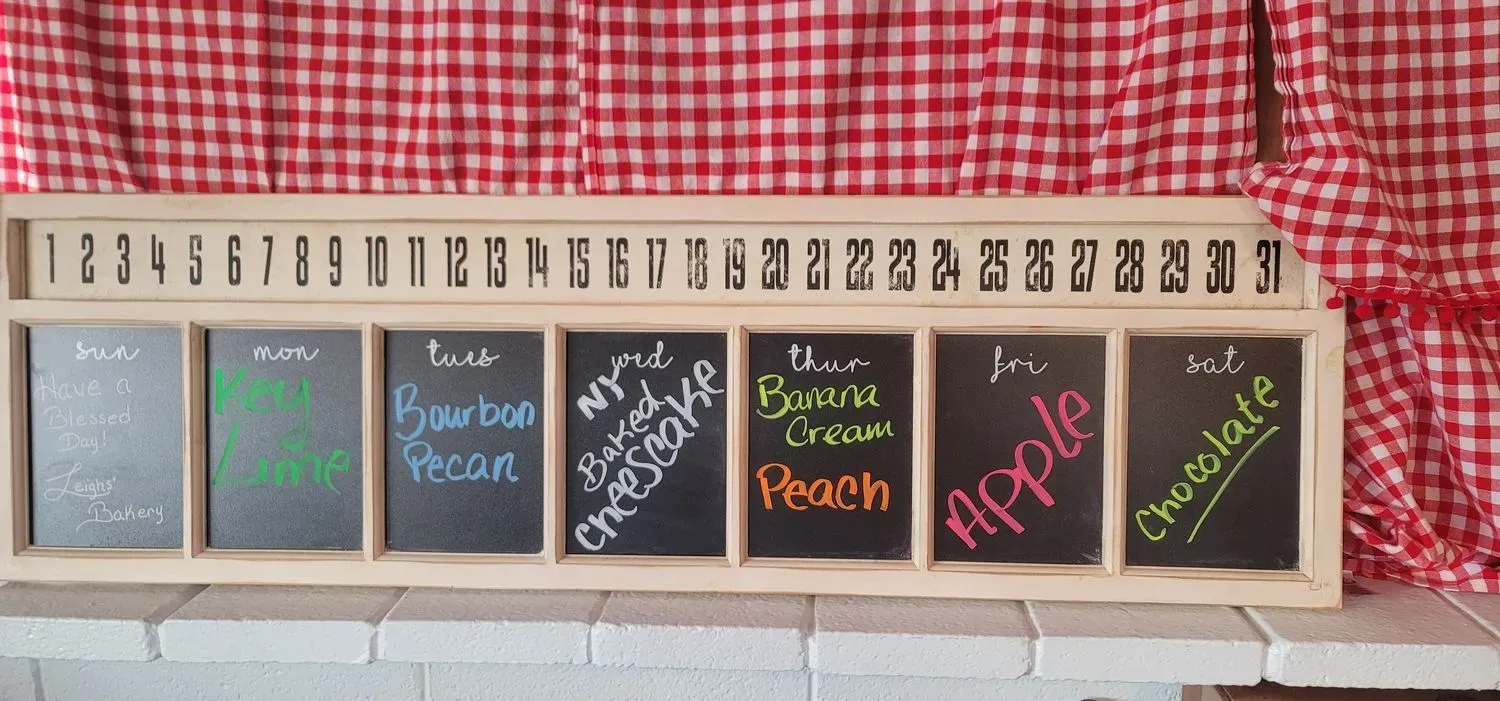 1 2 3 4 5 6 7 8 9 10 11 12 13 14 15 16 17 18 19 20 21 22 23 24 25 26 27 28 29 30 31
sun
Have a
Blessed
Day!
Leighs'
Bakery
mon
Key
Lime
tues
Bourbon
Pecan
wed
NY
Baked
Cheescake
thur
Banana
Cream
Peach
fri
Apple
sat
Chocolate